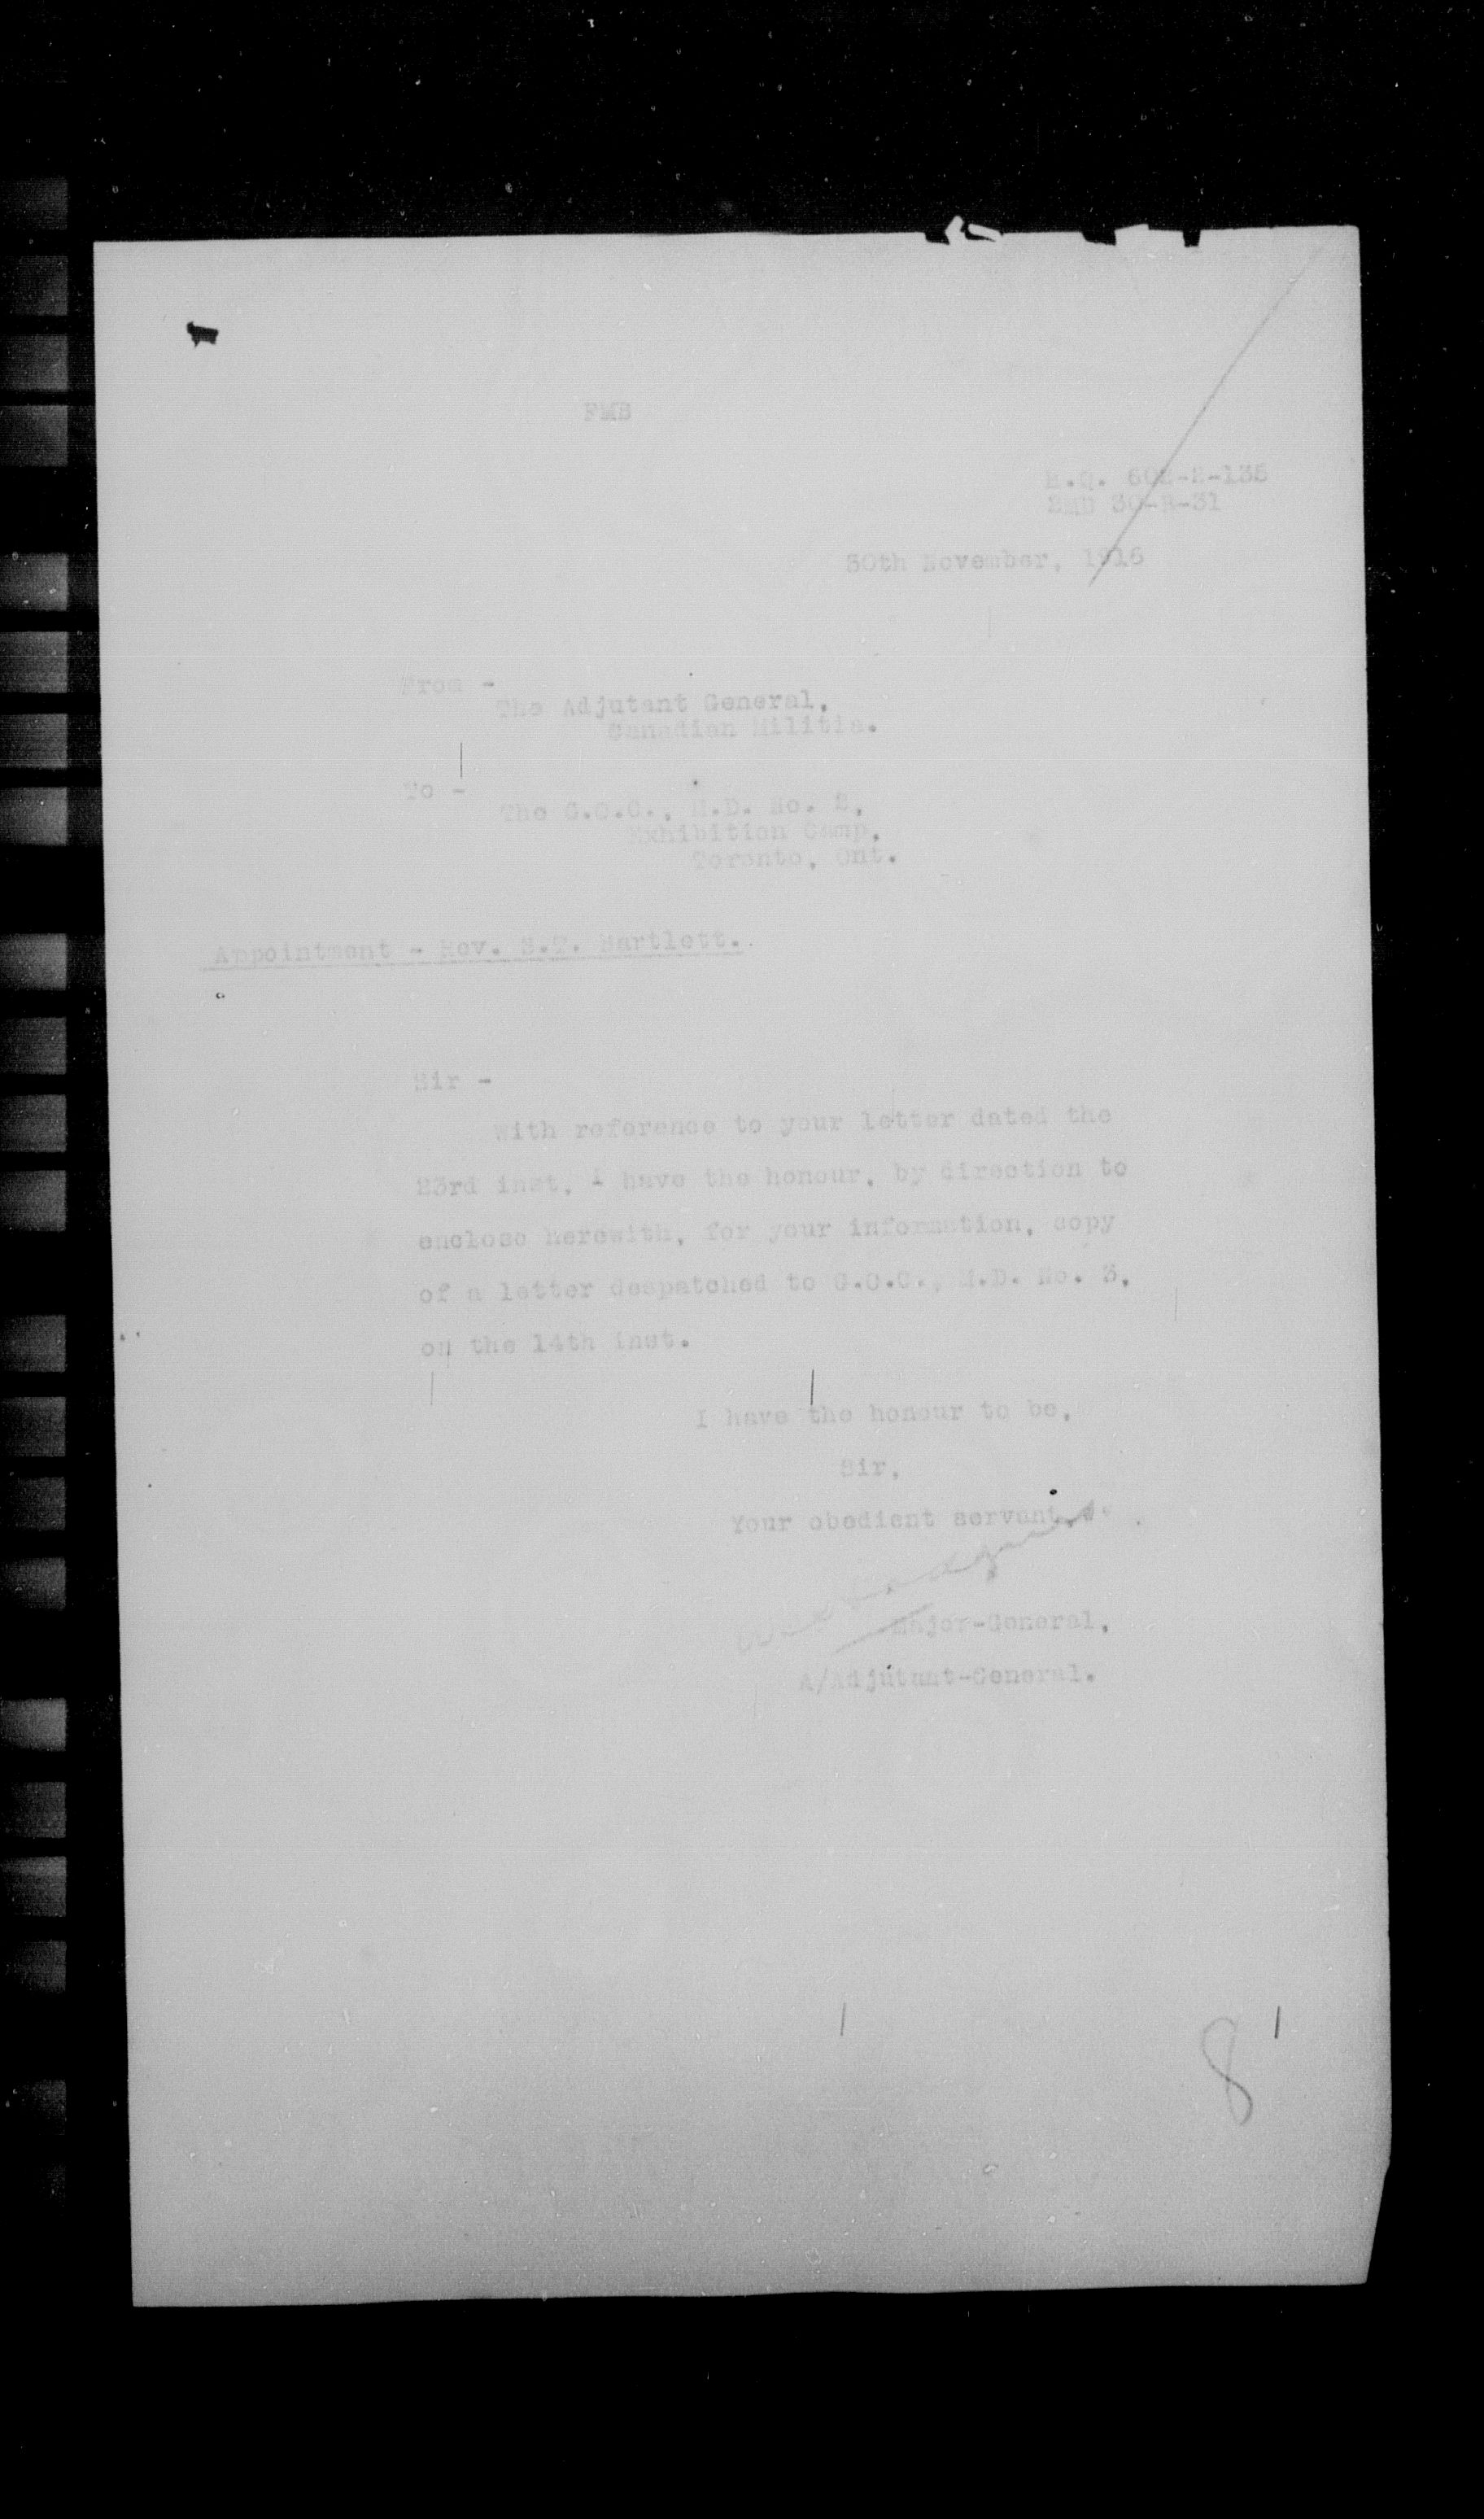 FMB
H.Q. 602-2-135
2MD 30-B-31
30th November, 1916
From -
The Adjutant General,
Canadian Militia.
To -
The G.O.C., M.D. No. 2,
Exhibition Camp,
Toronto, Ont.
Appointment - Rev. S.T. Bartlett.
Sir -
With reference to your letter dated the
23rd inst, I have the honour, by direction to
enclose herewith, for your information, copy
of a letter despatched to G.O.C., M.D. No. 3,
on the 14th inst.
I have the honour to be,
Sir,
Your obedient servant,
Major-General,
A/Adjutant-General.
8